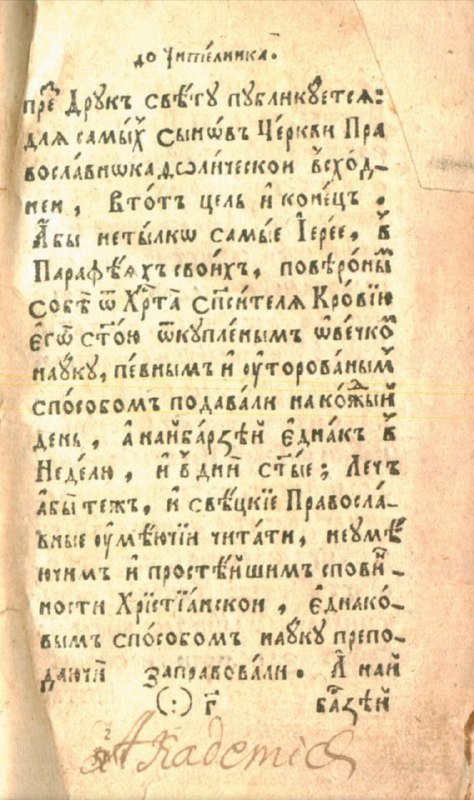 до Чителника.
пре́з Друкъ свѣ́ту публикꙋется:
для самы́хъ Сынѡ́въ Це́ркви Пра
вославнѡкаѳолі́ческои всхо́д-
неи, Втотъ цель и҆ коне́цъ.
А҆бы нетылкѡ самые І҆ере́е, в
Парафѣ́яхъ свои́хъ, повѣро́ным
собѣ̀ ѿ Хрⷭ҇та̀ Сп҃си́теля Кро́вїю
є҆гѡ̀ ст҃о́ю ѿкупле́нымъ ѡ҆ве́чком
нау́ку, пе́внымъ и҆ у҆торова́ным
спо́собомъ подава́ли на ко́ждый
день, А҆ найба́рзѣй є҆дна́къ в
Неде́лю, и҆ в дни ст҃ы́е; Лечъ
а҆бы́ тежъ, и҆ свѣ́цкїе Правосла́-
вные ᲂу҆мѣ́ючїи чита́ти, неумѣ́
ючимъ и҆ простѣ́йшимъ спови́н-
ности Хрїстїа́нскои, є҆днако́-
вымъ спо́собомъ нау́ку препо-
даючи заправова́ли. А҆ най
(:) г҃ ба́рзѣй
Akademie